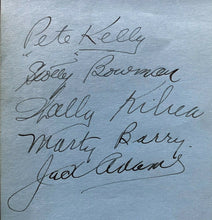 Pete Kelly
"Scotty" Bowman
Wally Kilrea
Marty Barry.
Jack Adams